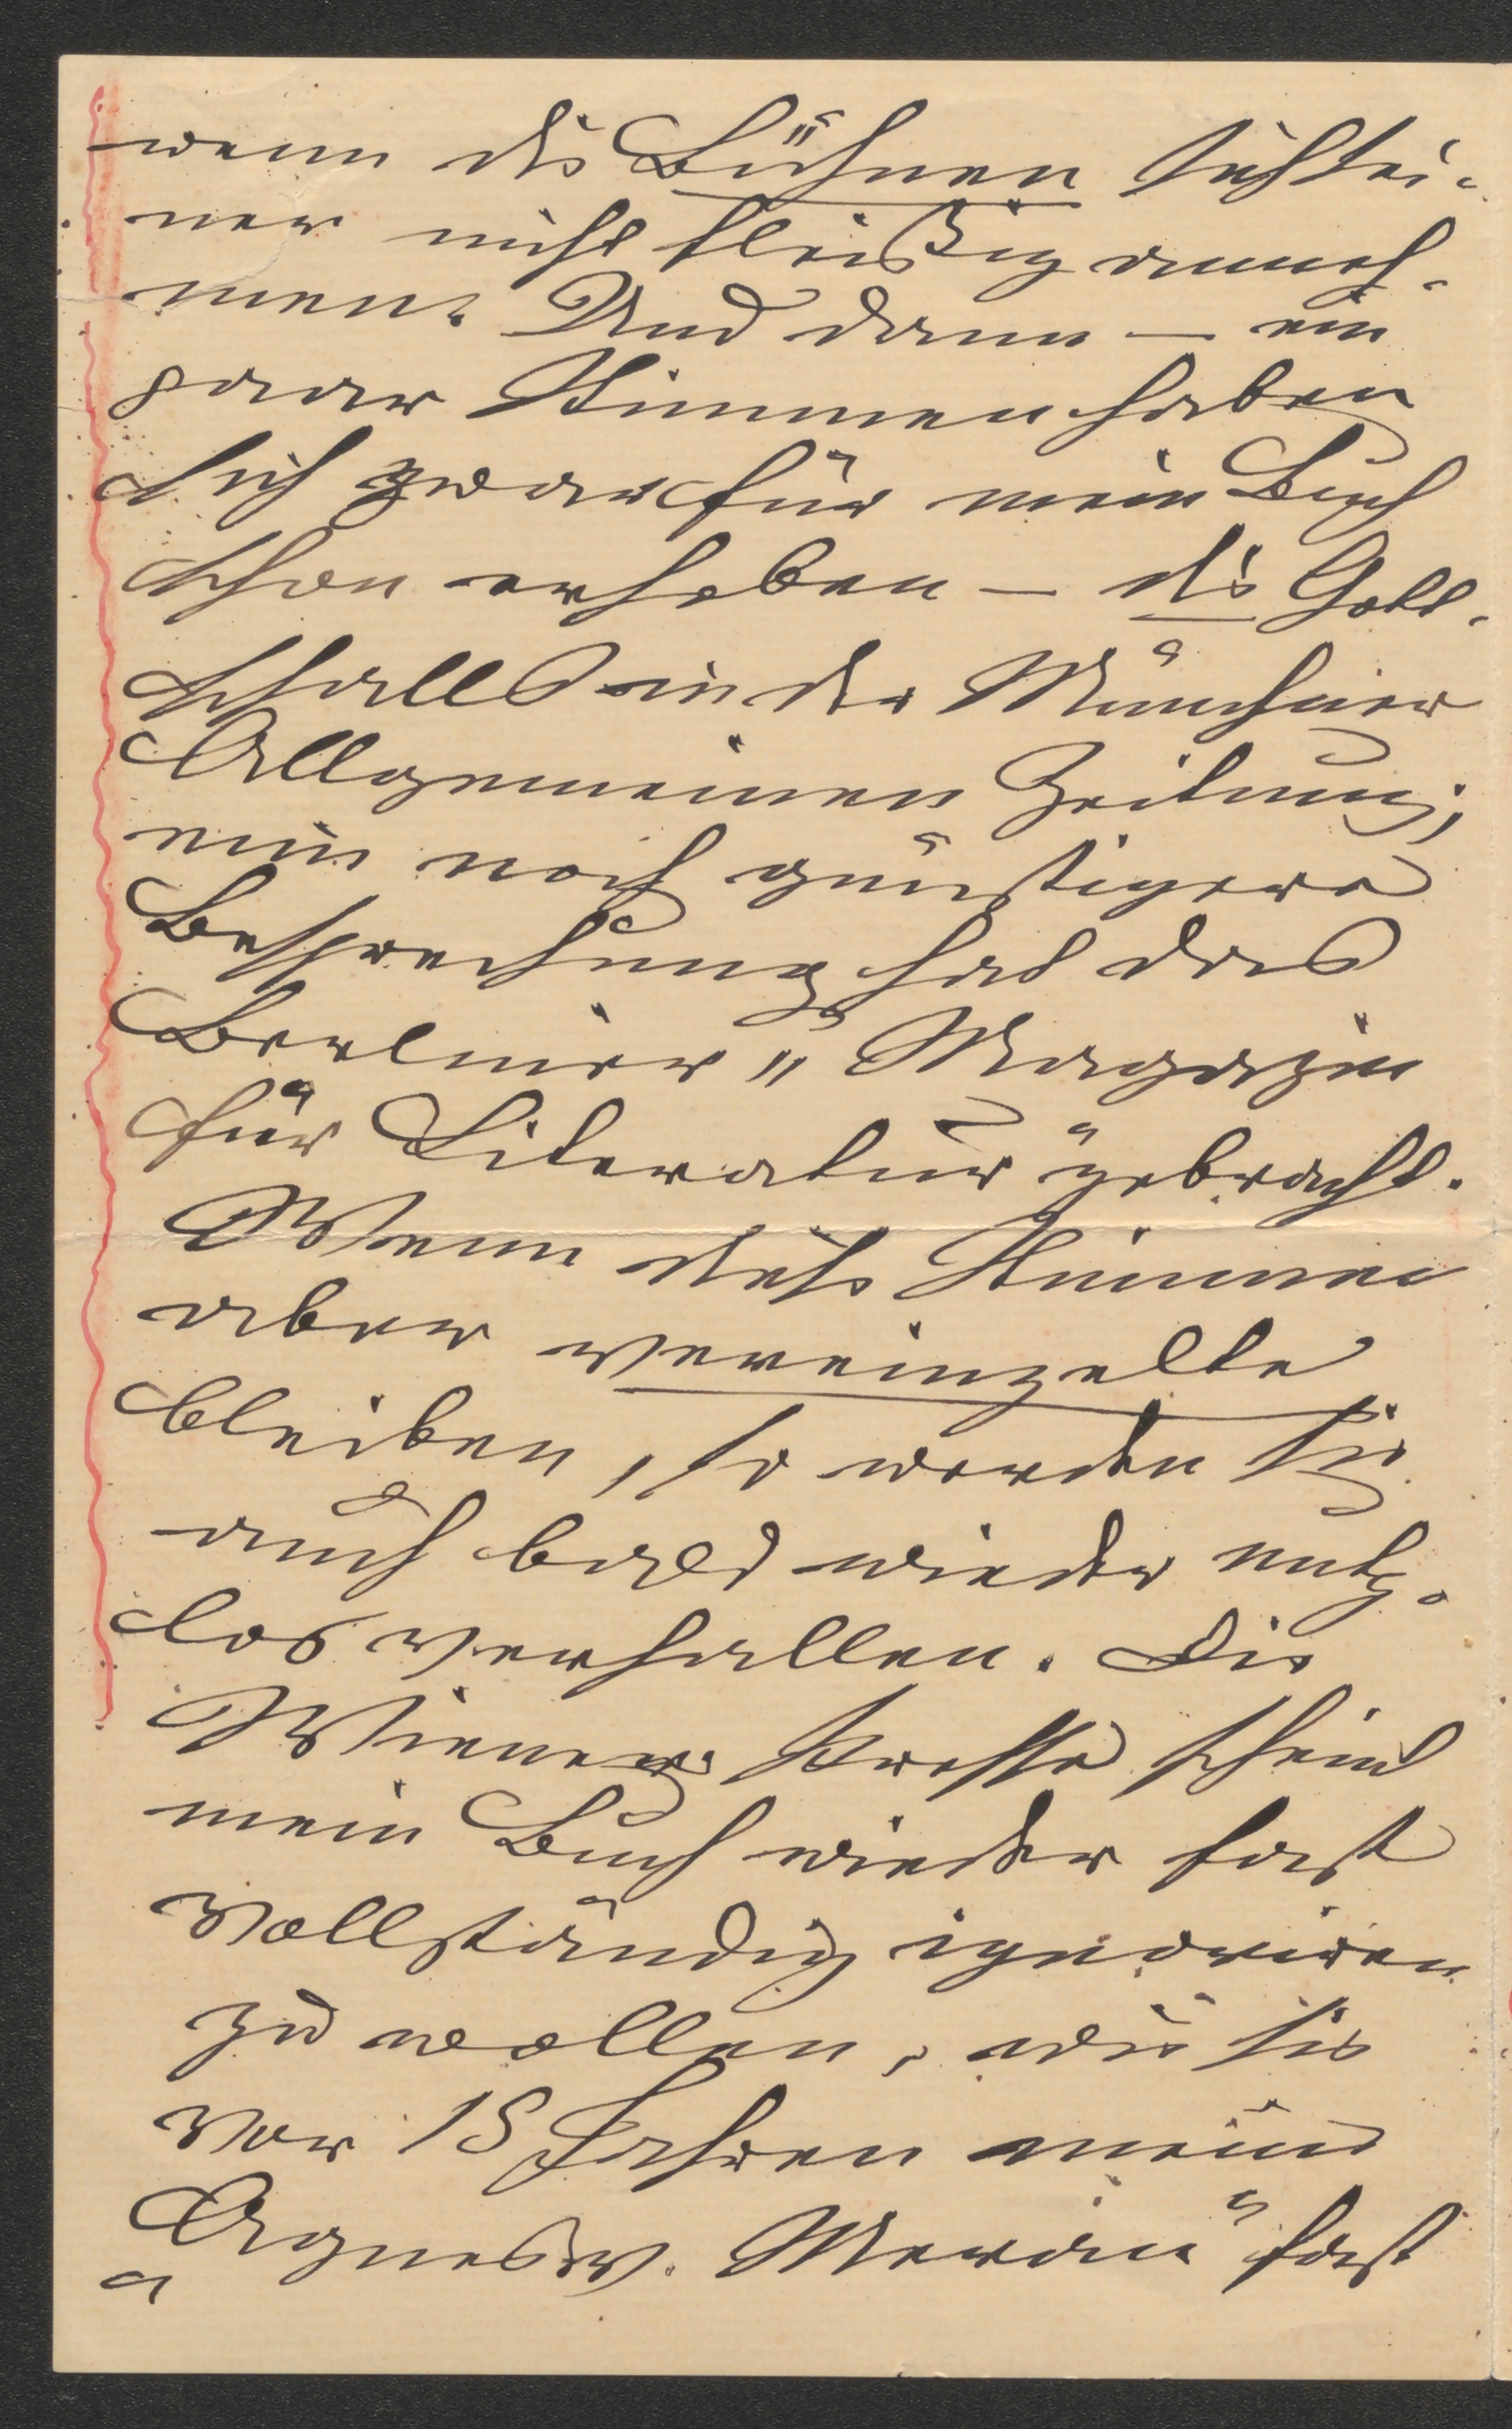 wenn die Bühnen sich sei-
ner nicht fleißig anneh-
men. Und dann — ein
paar Stimmen haben
sich zwar für mein Buch
schon erhoben — die Gott-
schalls in der Münchner
Allgemeinen Zeitung;
eine noch günstigere
Besprechung hat das
Berliner „Magazin
für Literatur" gebracht.
Wenn diese Stimmen
aber vereinzelte
bleiben, so werden sie
auch bald wieder nutz-
los verhallen. Die
Wiener Presse scheint
mein Buch wieder fast
vollständig ignoriren
zu wollen, wie sie
vor 15 Jahren meine
„Agnes v. Meran" fast